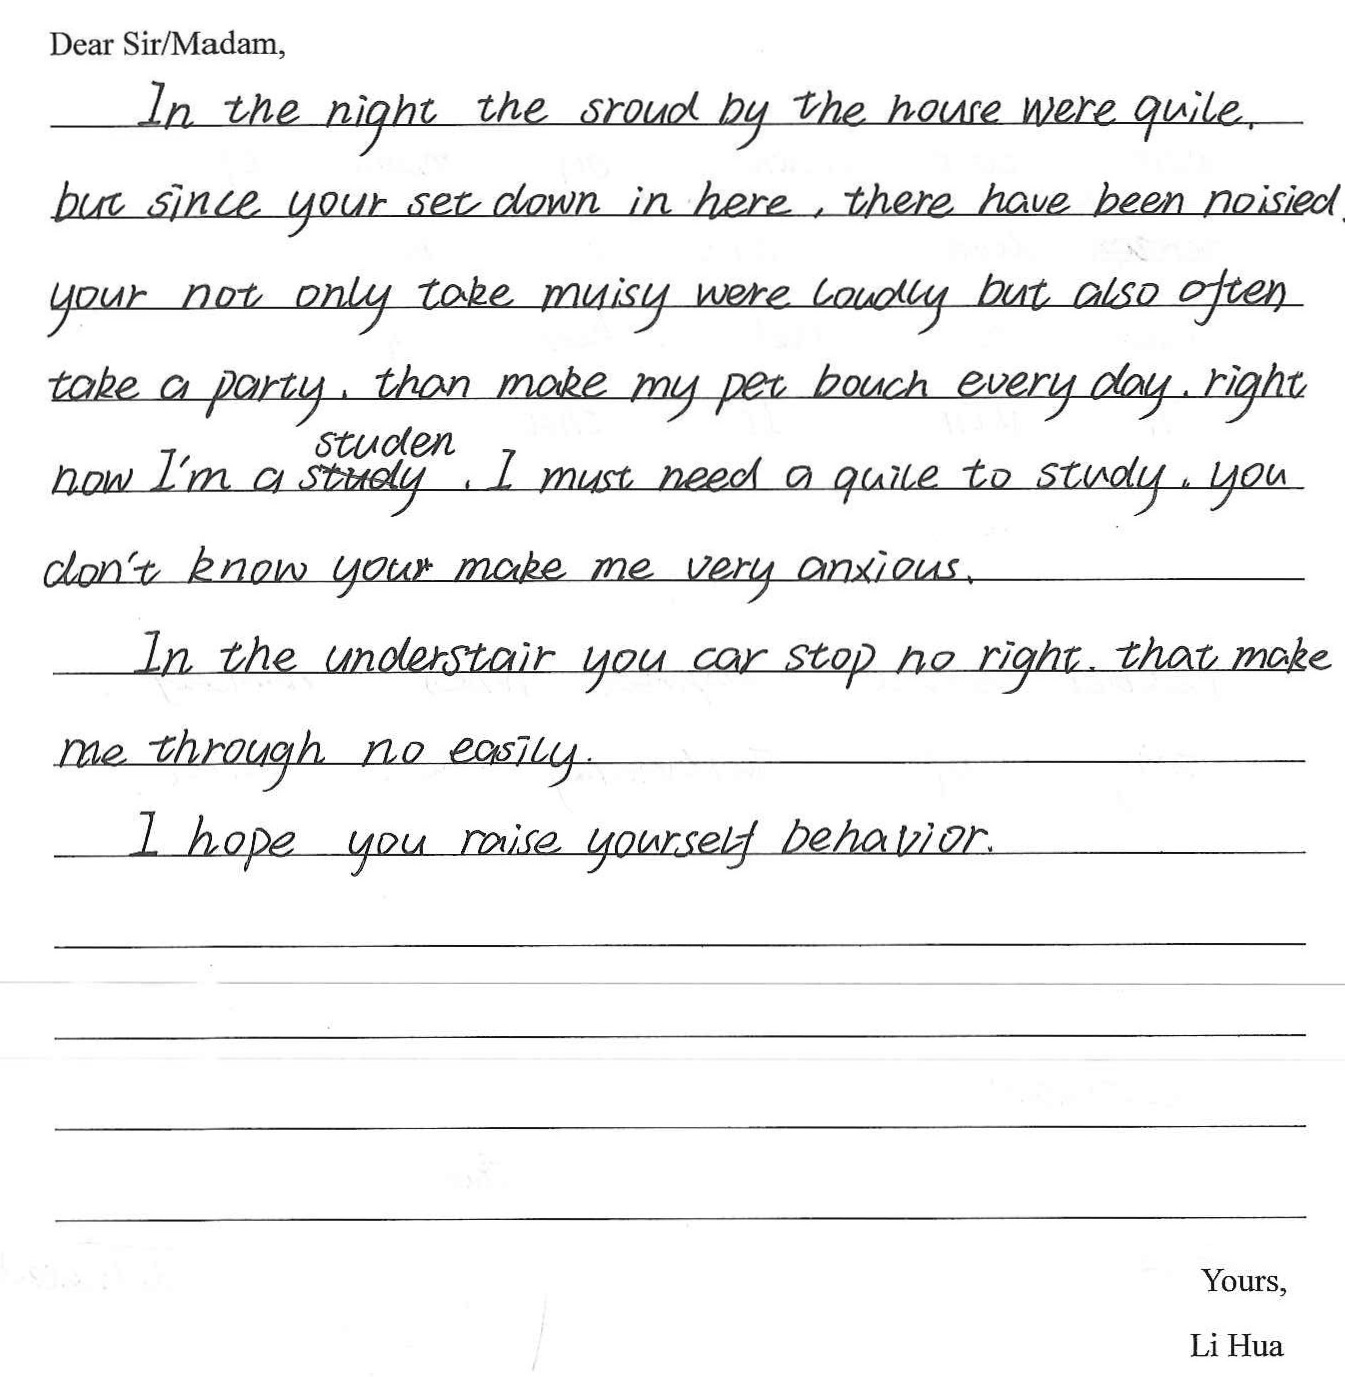 Dear Sir/Madam,
In the night the sroud by the house were quile.
but since your set down in here, there have been noisied.
your not only take muisy were loudly but also often
take a party. than make my pet bouch every day. right
studen
now I'm a study. I must need a quile to study. you
don't know your make me very anxious.
In the understair you car stop no right. that make
me through no easily.
I hope you raise yourself behavior.
Yours,
Li Hua